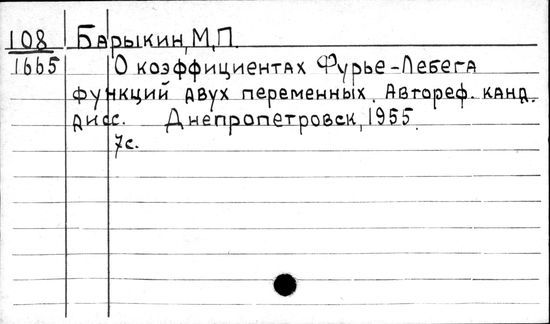 108 Барыкин, М.П.
1665 О коэффициентах Фурье-Лебега
функций двух переменных. Автореф. канд.
дисс. Днепропетровск, 1955.
7с.